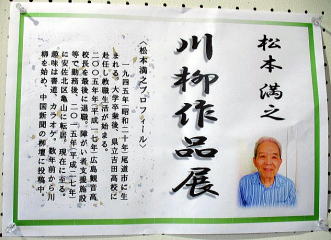 松本満之
川柳作品展
〈松本満之プロフィール〉
一九四五年(昭和二十年)尾道市に生
まれる。大学卒業後、県立吉田高校に
赴任し教職生活が始まる。
二〇〇五年(平成一七年)広島観音高
校長を最後に退職。障がい者支援施設
等で勤務後、二〇一五年(平成二七年)
に安佐北区亀山に転居。現在に至る。
趣味は書道、カラオケ。数年前から川
柳を始め、中国新聞の柳壇に投稿中。